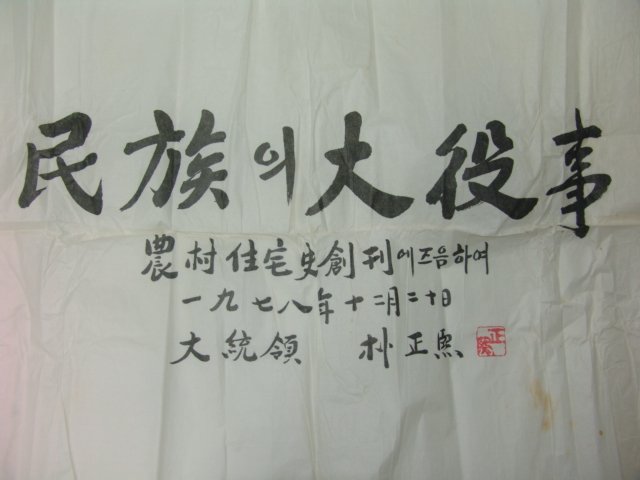 民族의大役事
農村住宅史創刊에즈음하여
一九七八年十二月二十日
大統領 朴正熙 正熙